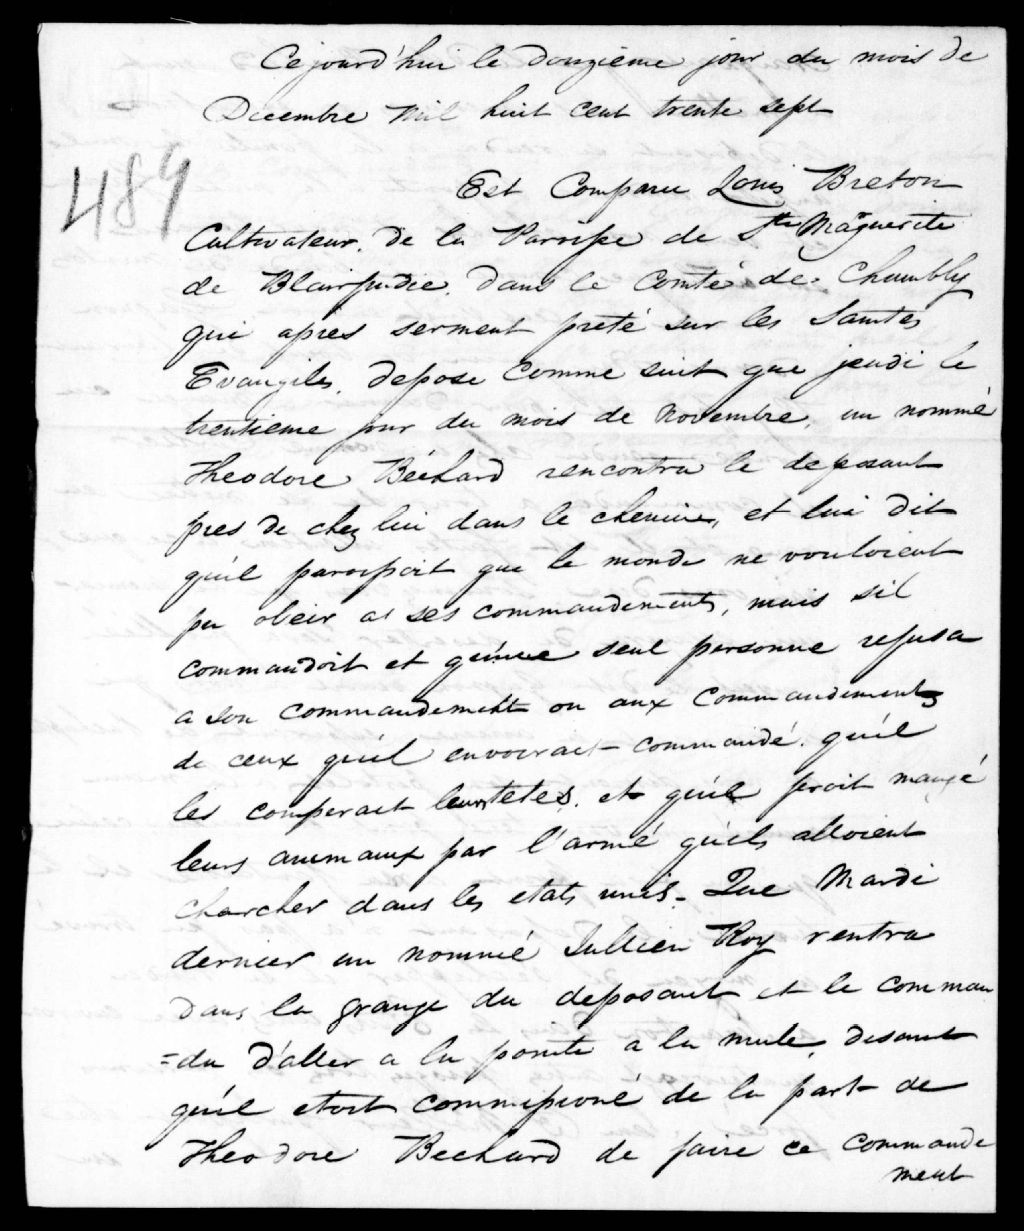 Cejourd'hui le douzième jour du mois de
Décembre Mil huit cent trente sept
489
Est Comparu Louis Breton
Cultivateur de la Paroisse de Ste Marguerite
de Blairfindie, dans le Comté de Chambly
qui apres serment preté sur les Saintes
Evangiles, depose comme suit que jeudi le
trentieme jour du mois de Novembre, un nommé
Theodore Béchard rencontra le deposant
pres de chez lui dans le chemin, et lui dit
qu'il paroissoit que le monde ne vouloient
pa obeir a ses commandements, mais sil
commandoit et qu'une seul personne refusa
a son commandement ou aux commandements
de ceux qu'il envoirait commandé. qu'il
les couperait leurs tetes. et qu'il feroit mangé
leurs animaux par l'armé qu'ils alloient
charcher dans les etats unis. Que Mardi
dernier un nommé Jullien Roy rentra
dans la grange du deposant et le comman
=da d'aller a la pointe a la mule, disant
qu'il etoit commissioné de la part de
Theodore Bechard de faire ce commande
ment